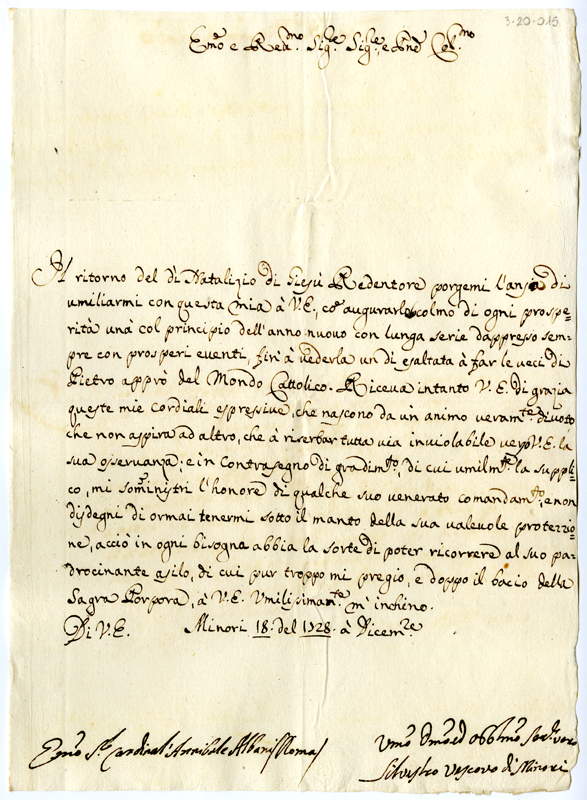 3-20-015
Emo e Revmo Sigre Sigre, e Pne Colmo
Il ritorno del dì Natalizio di Giesù Redentore porgemi l'ansa di
umiliarmi con questa mia à V.E., co augurarle colmo di ogni prospe=
rità unà col principio dell'anno nuovo con lunga serie dappresso sem=
pre con prosperi eventi, fin'à vederla un dì esaltata à far le veci di
Pietro apprò del Mondo Cattolico. Riceva intanto V.E. di grazia
queste mie cordiali espressive, che nascono da un animo veramte divoto
che non aspira ad altro, che à riserbar tutta via inviolabile verso V.E. la
sua osservanza; e in contrasegno di gradimto, di cui umilmte la suppli=
co, mi somministri l'honore di qualche suo venerato comandamto, e non
disdegni di ormai tenermi sotto il manto della sua valevole protezzio=
ne, acciò in ogni bisogna abbia la sorte di poter ricorrere al suo pa=
drocinante asilo, di cui pur troppo mi pregio, e doppo il bacio della
Sagra Porpora, à V.E. Umilissimamte m'inchino.
Di V.E. Minori 18. del 1728. à Dicemre
Emo Sr Cardinal' Annibale Albani Roma
Umo Dmo ed Obbmo Serre vero
Silvestro Vescovo di Minori